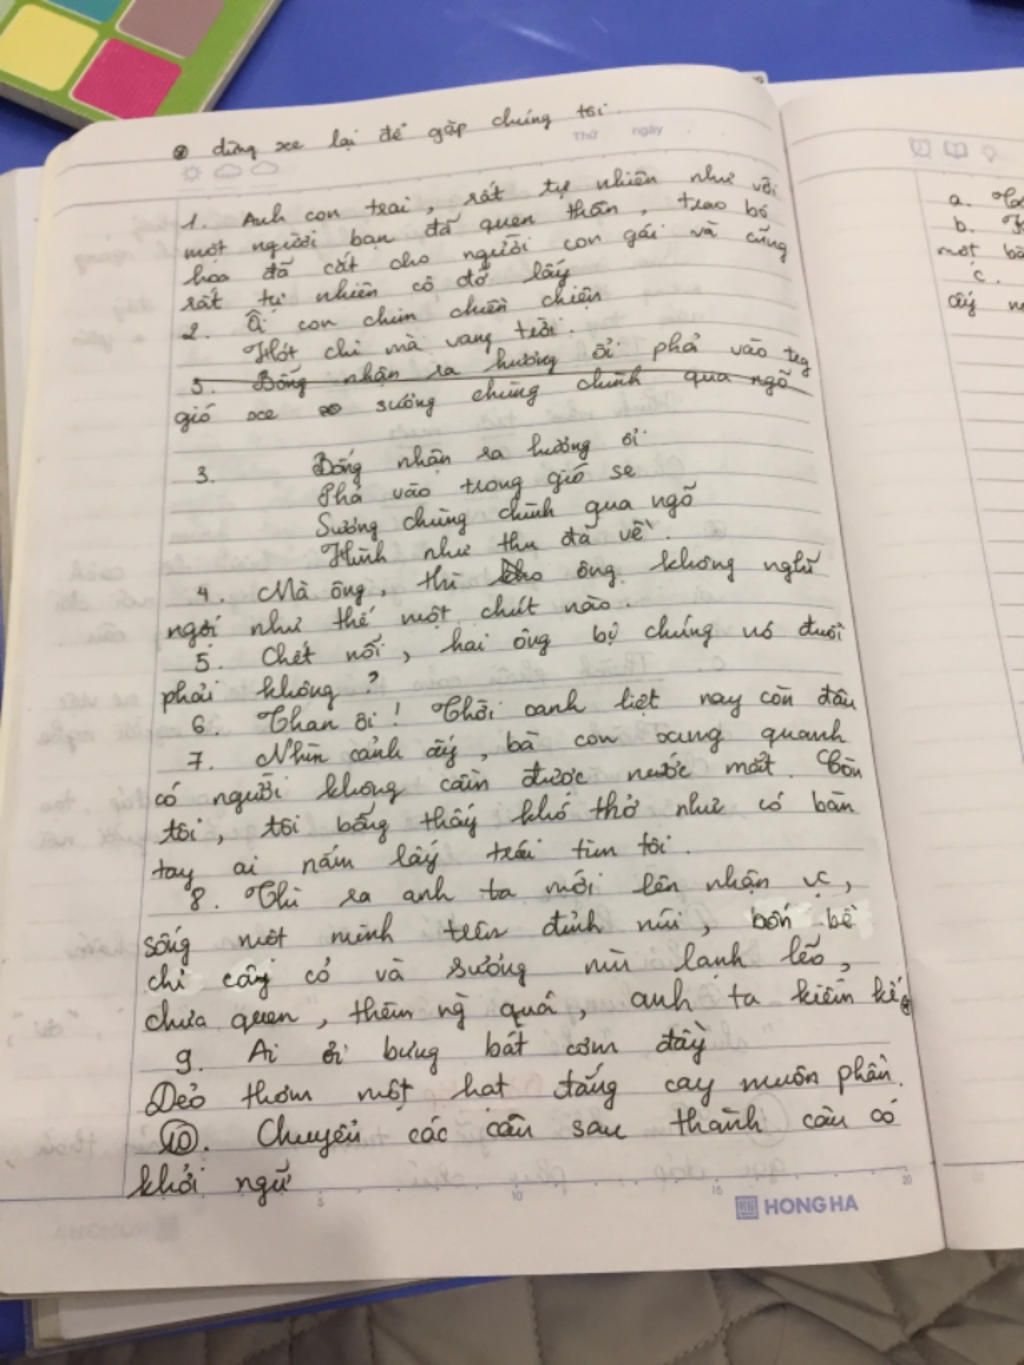 dừng xe lại để gặp chúng tôi.
Thứ ngày
1. Anh con trai, rất tự nhiên như với
một người bạn đã quen thân, trao bó
hoa đã cắt cho người con gái và cũng
rất tự nhiên cô đỡ lấy
2. Ôi con chim chiền chiện
Hót chi mà vang trời.
3. Bỗng nhận ra hương ổi phả vào trg
gió xe sương chùng chình qua ngõ
3. Bỗng nhận ra hương ổi
Phả vào trong gió se
Sương chùng chình qua ngõ
Hình như thu đã về.
4. Mà ông, thì ông không nghĩ
ngợi như thế một chút nào.
5. Chết nỗi, hai ông bị chúng nó đuổi
phải không?
6. Than ôi! Thời oanh liệt nay còn đâu
7. Nhìn cảnh ấy, bà con xung quanh
có người không cầm được nước mắt. Còn
tôi, tôi bỗng thấy khó thở như có bàn
tay ai nắm lấy trái tim tôi.
8. Thì ra anh ta mới lên nhận vc,
sống một mình trên đỉnh núi, bốn bề
chỉ cây cỏ và sương mù lạnh lẽo,
chưa quen, thèm ng quá, anh ta kiếm kế
9. Ai ơi bưng bát cơm đầy
Dẻo thơm một hạt đắng cay muôn phần.
10. Chuyển các câu sau thành câu có
khởi ngữ
5 10 15 20
HONG HA
a.
b.
một
c.
ấy